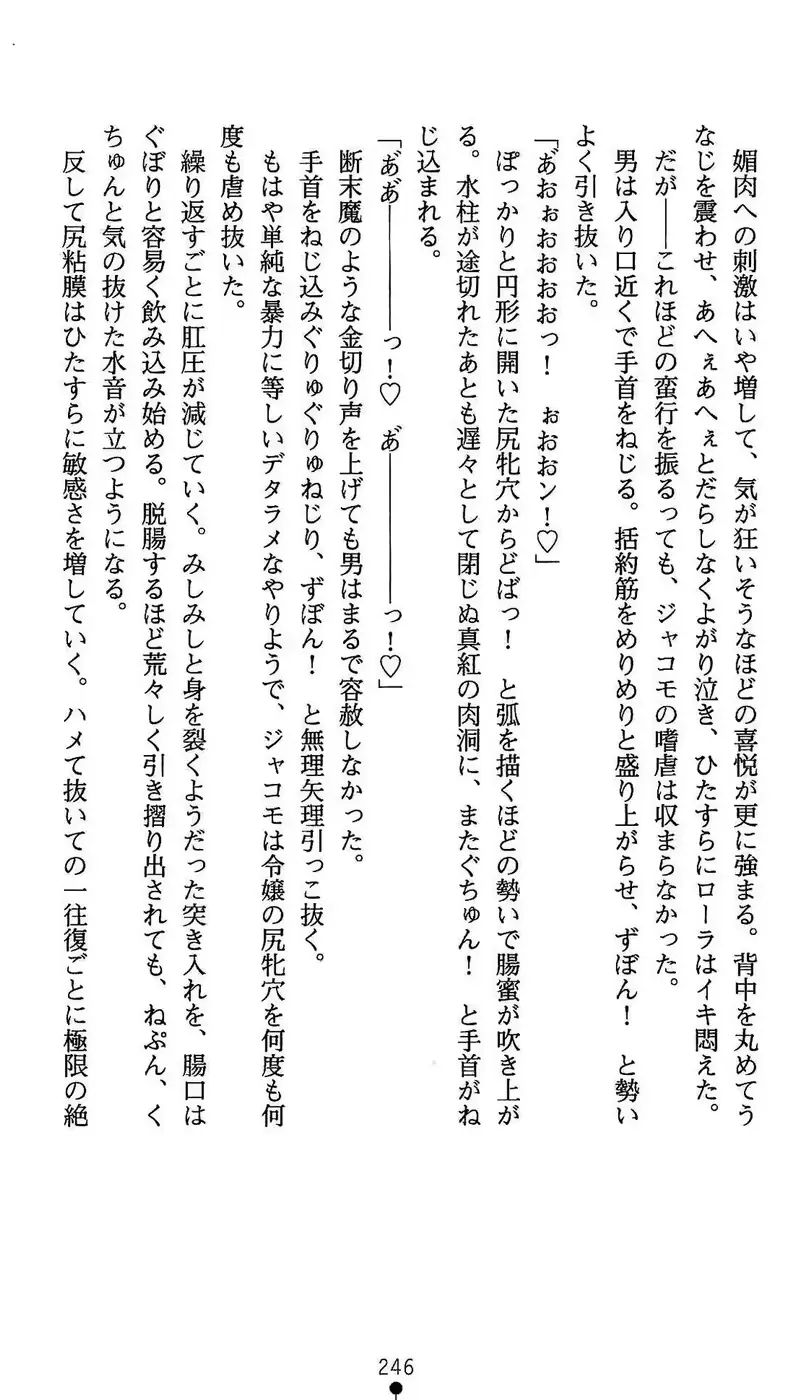 媚肉への刺激はいや増して、気が狂いそうなほどの喜悦が更に強まる。背中を丸めてう
なじを震わせ、あへぇあへぇとだらしなくよがり泣き、ひたすらにローラはイキ悶えた。
だが――これほどの蛮行を振るっても、ジャコモの嗜虐は収まらなかった。
男は入り口近くで手首をねじる。括約筋をめりめりと盛り上がらせ、ずぼん！　と勢い
よく引き抜いた。
「あ゛おぉおおおおっ！　ぉおおン！♡」
ぽっかりと円形に開いた尻牝穴からどばっ！　と弧を描くほどの勢いで腸蜜が吹き上が
る。水柱が途切れたあとも遅々として閉じぬ真紅の肉洞に、またぐちゅん！　と手首がね
じ込まれる。
「あ゛あ゛――――――っ！♡　あ゛――――――っ！♡」
断末魔のような金切り声を上げても男はまるで容赦しなかった。
手首をねじ込みぐりゅぐりゅねじり、ずぼん！　と無理矢理引っこ抜く。
もはや単純な暴力に等しいデタラメなやりようで、ジャコモは令嬢の尻牝穴を何度も何
度も虐め抜いた。
繰り返すごとに肛圧が減じていく。みしみしと身を裂くようだった突き入れを、腸口は
ぐぽりと容易く飲み込み始める。脱腸するほど荒々しく引き摺り出されても、ねぷん、く
ちゅんと気の抜けた水音が立つようになる。
反して尻粘膜はひたすらに敏感さを増していく。ハメて抜いての一往復ごとに極限の絶
246